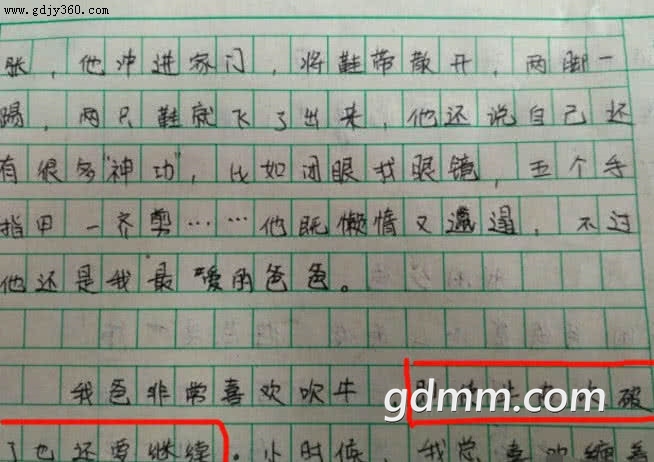 www.gdjy360.com
张，他冲进家门，将鞋带散开，两脚一
踢，两只鞋就飞了出来，他还说自己还
有很多"神功"，比如闭眼找眼镜，五个手
指甲一齐剪……他既懒惰又邋遢，不过
他还是我最爱的爸爸。
我爸非常喜欢吹牛，破
gdmm.com
了也还要继续。小时候，我总喜欢缠着